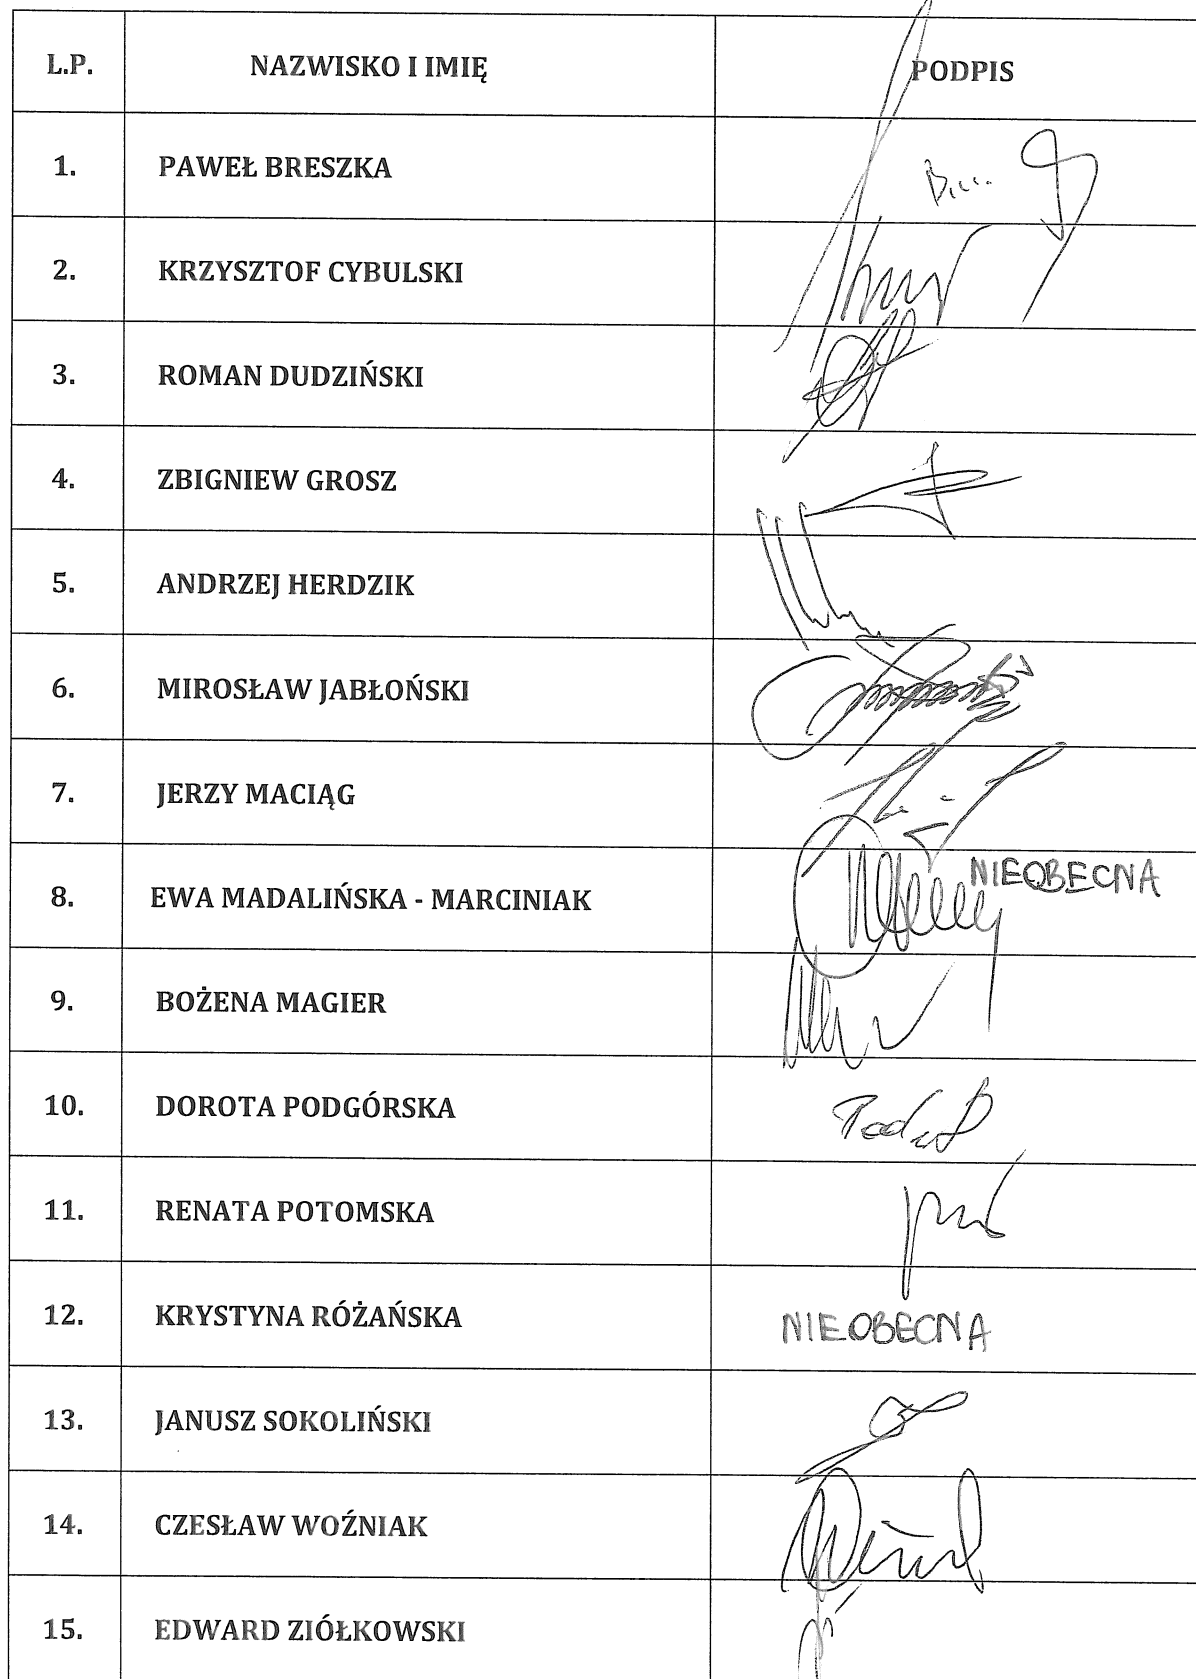 L.P. NAZWISKO I IMIĘ PODPIS
1. PAWEŁ BRESZKA
2. KRZYSZTOF CYBULSKI
3. ROMAN DUDZIŃSKI
4. ZBIGNIEW GROSZ
5. ANDRZEJ HERDZIK
6. MIROSŁAW JABŁOŃSKI
7. JERZY MACIĄG
8. EWA MADALIŃSKA - MARCINIAK NIEOBECNA
9. BOŻENA MAGIER
10. DOROTA PODGÓRSKA
11. RENATA POTOMSKA
12. KRYSTYNA RÓŻAŃSKA NIEOBECNA
13. JANUSZ SOKOLIŃSKI
14. CZESŁAW WOŹNIAK
15. EDWARD ZIÓŁKOWSKI